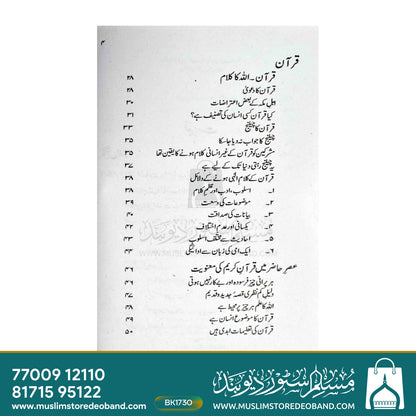 ۴
قرآن
قرآن۔ اللہ کا کلام ۲۸
قرآن کا دعویٰ ۲۸
اہل مکہ کے بعض اعتراضات ۳۰
کیا قرآن کسی انسان کی تصنیف ہے؟ ۳۱
قرآن کا چیلنج ۳۳
چیلنج کا جواب نہ دیا جا سکا ۳۵
مشرکین کو قرآن کے غیر انسانی کلام ہونے کا یقین تھا ۳۵
یہ چیلنج رہتی دنیا تک کے لیے ہے
قرآن کے کلام الٰہی ہونے کے دلائل ۳۸
۱۔ اسلوب، ادب اور نظم کلام ۳۸
۲۔ موضوعات کی وسعت ۳۸
۳۔ بیانات کی صداقت ۴۰
۴۔ یکسانی اور عدم اختلاف ۴۲
۵۔ احادیث سے مختلف اسلوب ۴۳
۶۔ ایک امی کی زبان سے ادائیگی ۴۴
عصر حاضر میں قرآن کریم کی معنویت ۴۶
ہر پرانی چیز فرسودہ اور بے کار نہیں ہوتی ۴۶
دلیل کم نظری قصۂ جدید و قدیم ۴۷
اللہ کا علم ہر چیز پر محیط ہے
قرآن کا موضوع انسان ہے
قرآن کی تعلیمات ابدی ہیں ۵۰
77009 12110
81715 95122
www.muslimstoredeoband.com
BK1730
مسلم سٹور دیوبند
WWW.MUSLIMSTOREDEOBAND.COM